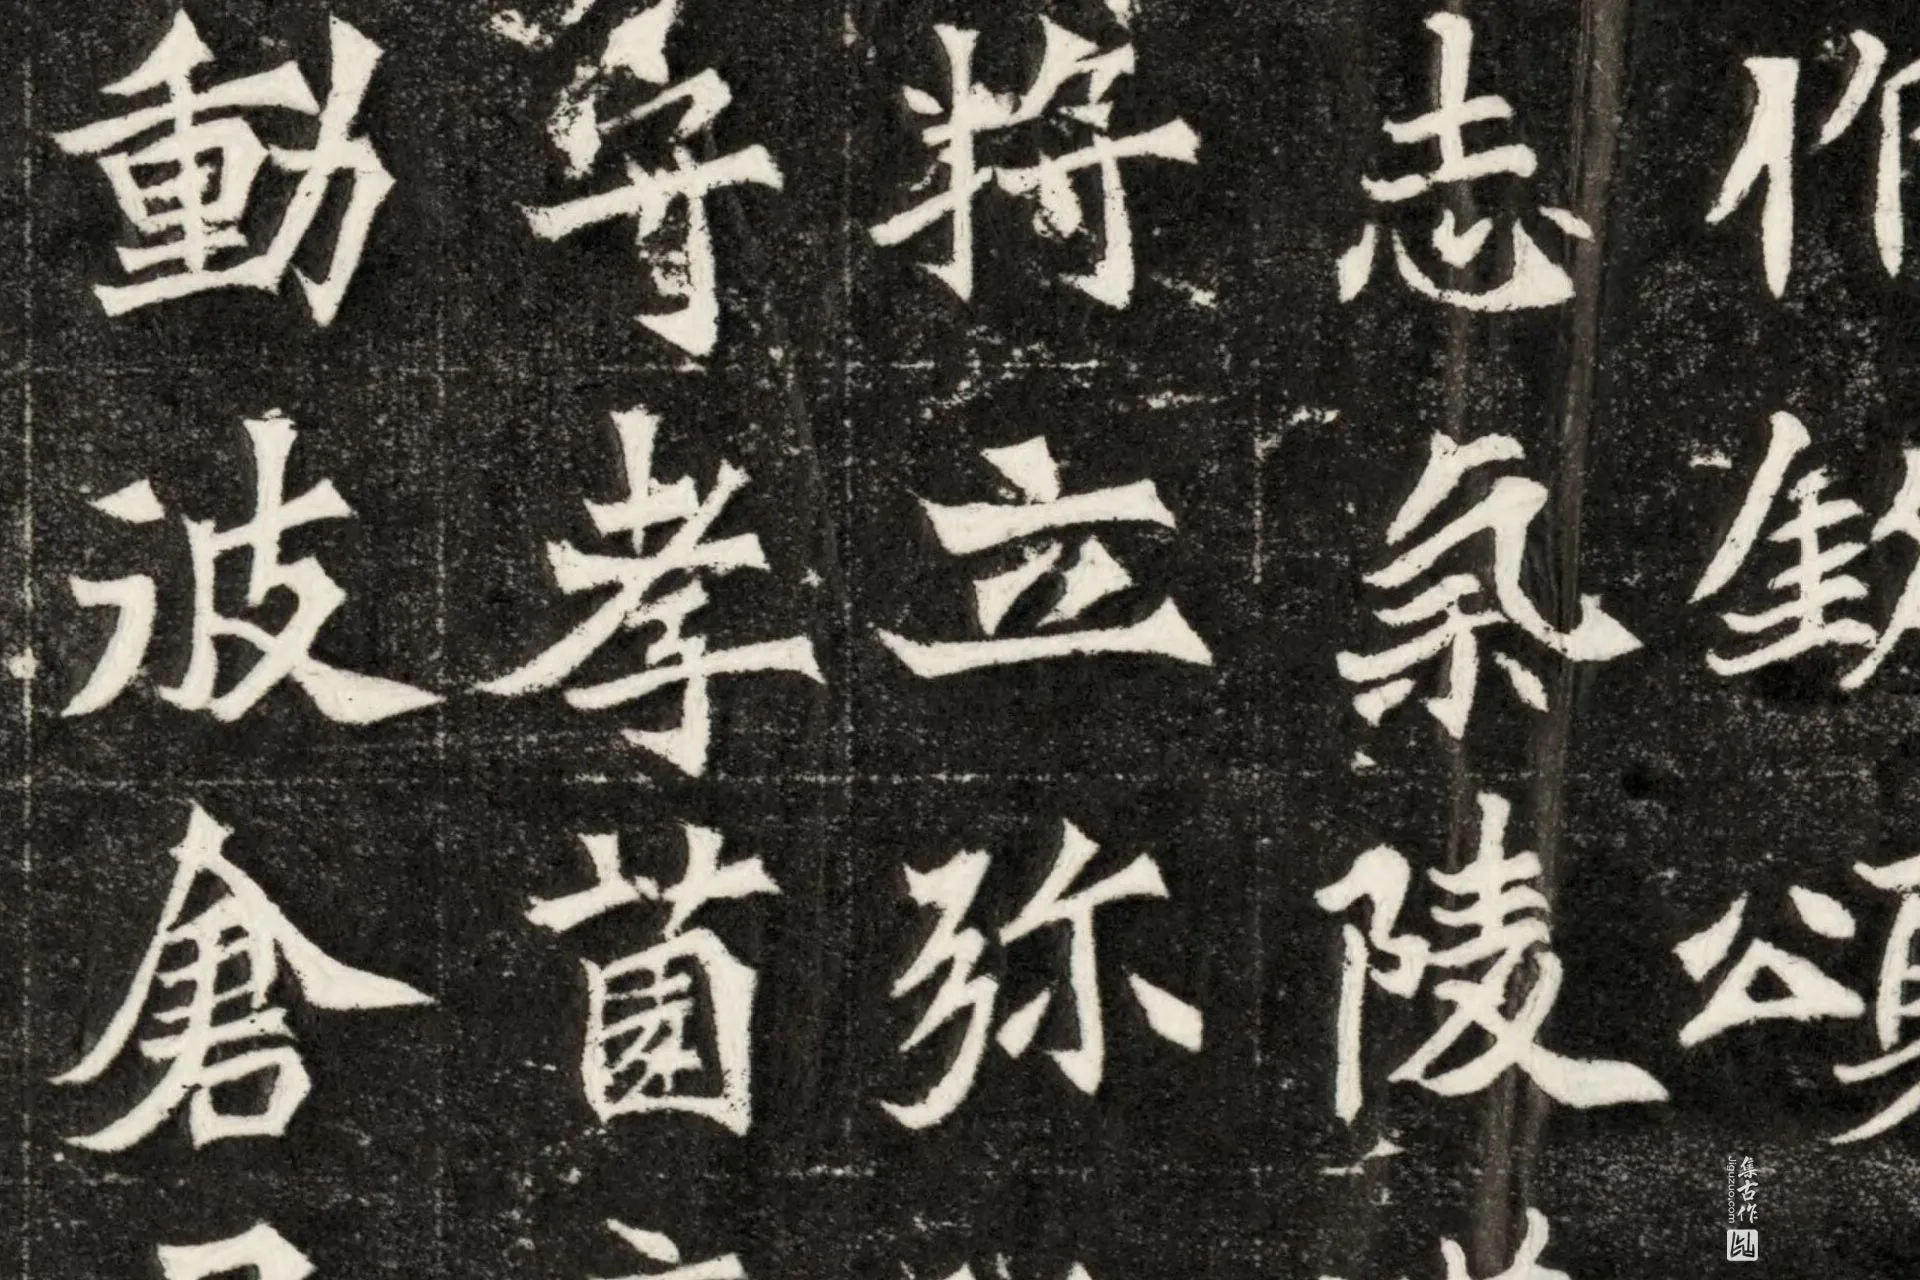 作頌
志氣陵
將立弥
守孝薗
動波倉
集古作
Jiguzuo.com